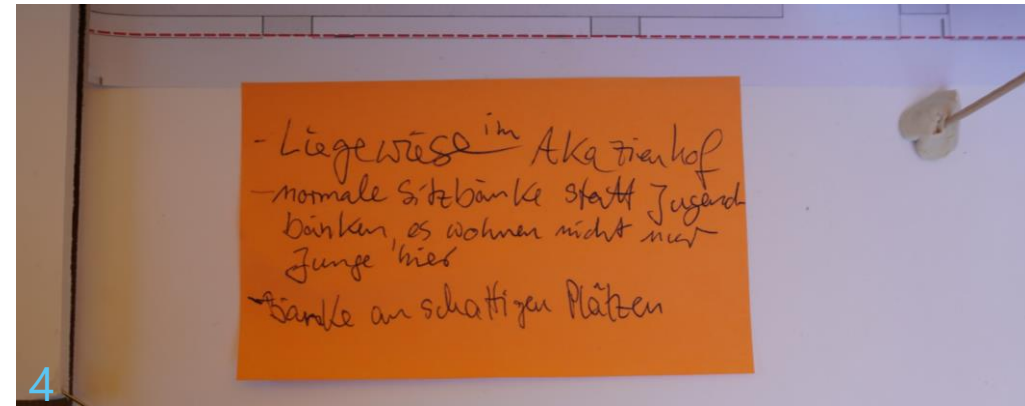 - Liegewiese im Akazienhof
- normale Sitzbänke statt Jugend
bänken, es wohnen nicht nur
Junge hier
- Bänke an schattigen Plätzen
4